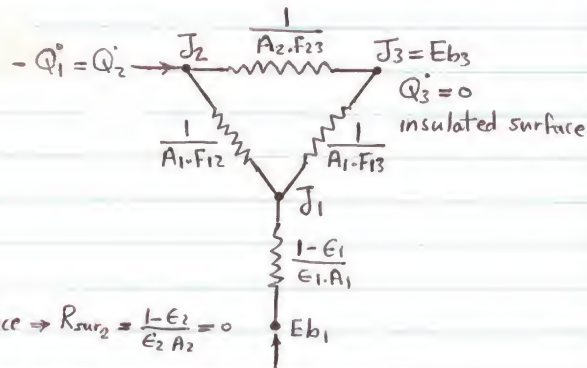 1/(A₂.F₂₃)
J₂
J₃ = Eb₃
- Q̇₁ = Q̇₂
Q̇₃ = 0
insulated surface
1/(A₁.F₁₂)
1/(A₁.F₁₃)
J₁
(1-ϵ₁)/(ϵ₁.A₁)
⇒ Rsur₂ = (1-ϵ₂)/(ϵ₂ A₂) = 0
Eb₁